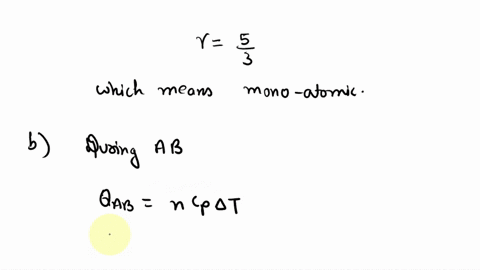 γ = 5/3
which means mono-atomic.
b) During AB
Q_AB = n Cp ΔT